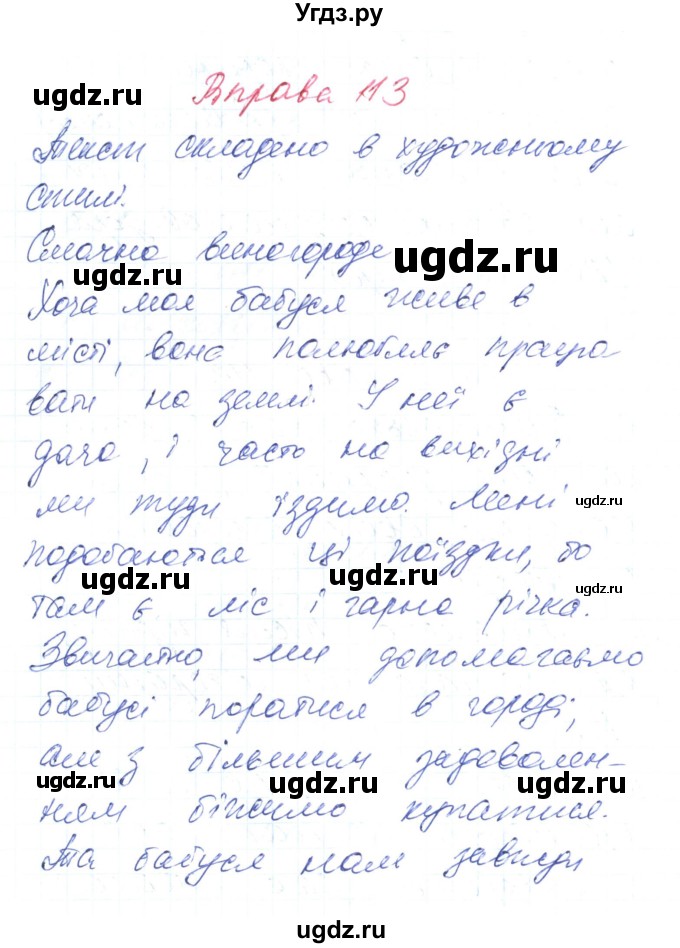 Угдз.ру
ugdz.ru
Вправа 113
Текст складено в художньому
стилі.
Смачно виногороде
ugdz.ru
ugdz.ru
Хоча моя бабуся живе в
ugdz.ru
місті, вона полюбляє працю
вати на землі. У неї є
ugdz.ru
ugdz.ru
дача, і часто на вихідні
ми туди їздимо. Мені
ugdz.ru
подобаються ці поїздки, бо
ugdz.ru
ugdz.ru
ugdz.ru
там є ліс і гарна річка.
Звичайно, ми допомагаємо
ugdz.ru
ugdz.ru
бабусі поратися в городі,
але з більшим задоволен-
ugdz.ru
ugdz.ru
ugdz.ru
ням біжимо купатися.
Та бабуся нам завжди
ugdz.ru